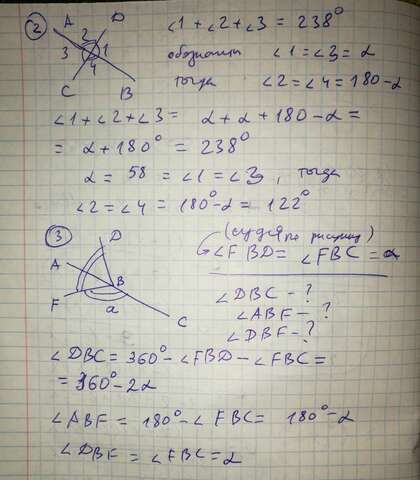 ② A D ∠1 + ∠2 + ∠3 = 238°
2
3 1
4
обозначим ∠1 = ∠3 = α
тогда ∠2 = ∠4 = 180 - α
C B
∠1 + ∠2 + ∠3 = α + α + 180 - α =
= α + 180° = 238°
α = 58 = ∠1 = ∠3, тогда
∠2 = ∠4 = 180° - α = 122°
③ D (судя по рисунку)
A B ∠FBD = ∠FBC = α
F a C
∠DBC - ?
∠ABF - ?
∠DBF - ?
∠DBC = 360° - ∠FBD - ∠FBC =
= 360° - 2α
∠ABF = 180° - ∠FBC = 180° - α
∠DBF = ∠FBC = α